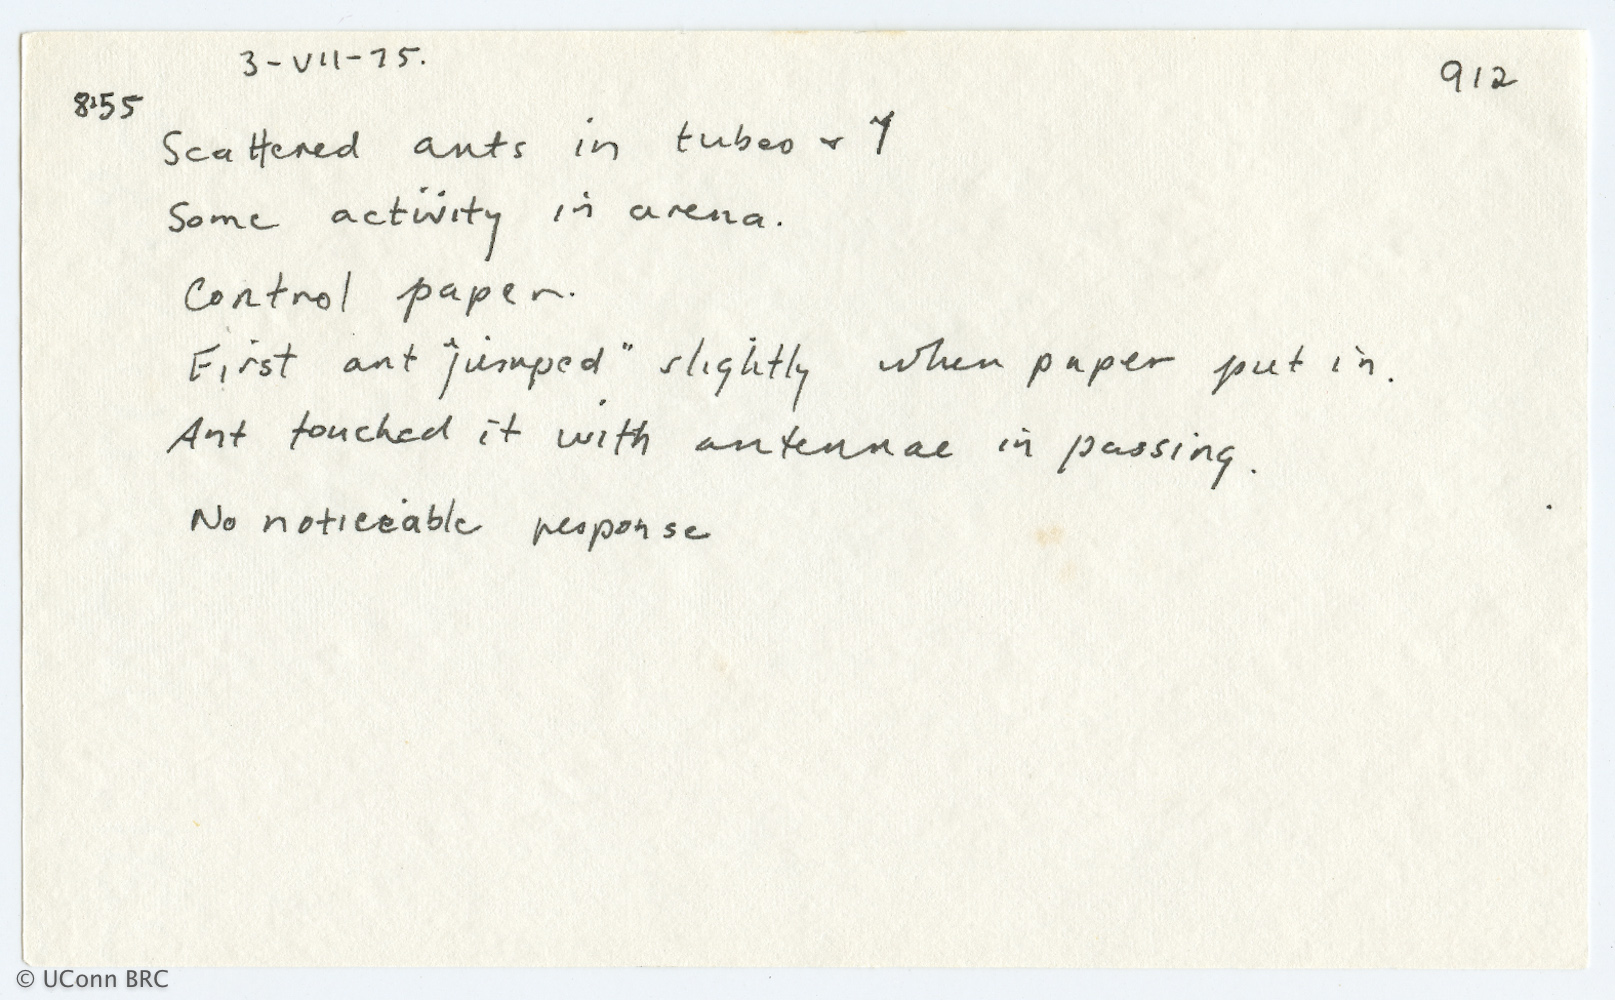 3-VII-75.
912
8:55
Scattered ants in tubes + Y
Some activity in arena.
Control paper.
First ant "jumped" slightly when paper put in.
Ant touched it with antennae in passing.
No noticeable response
© UConn BRC